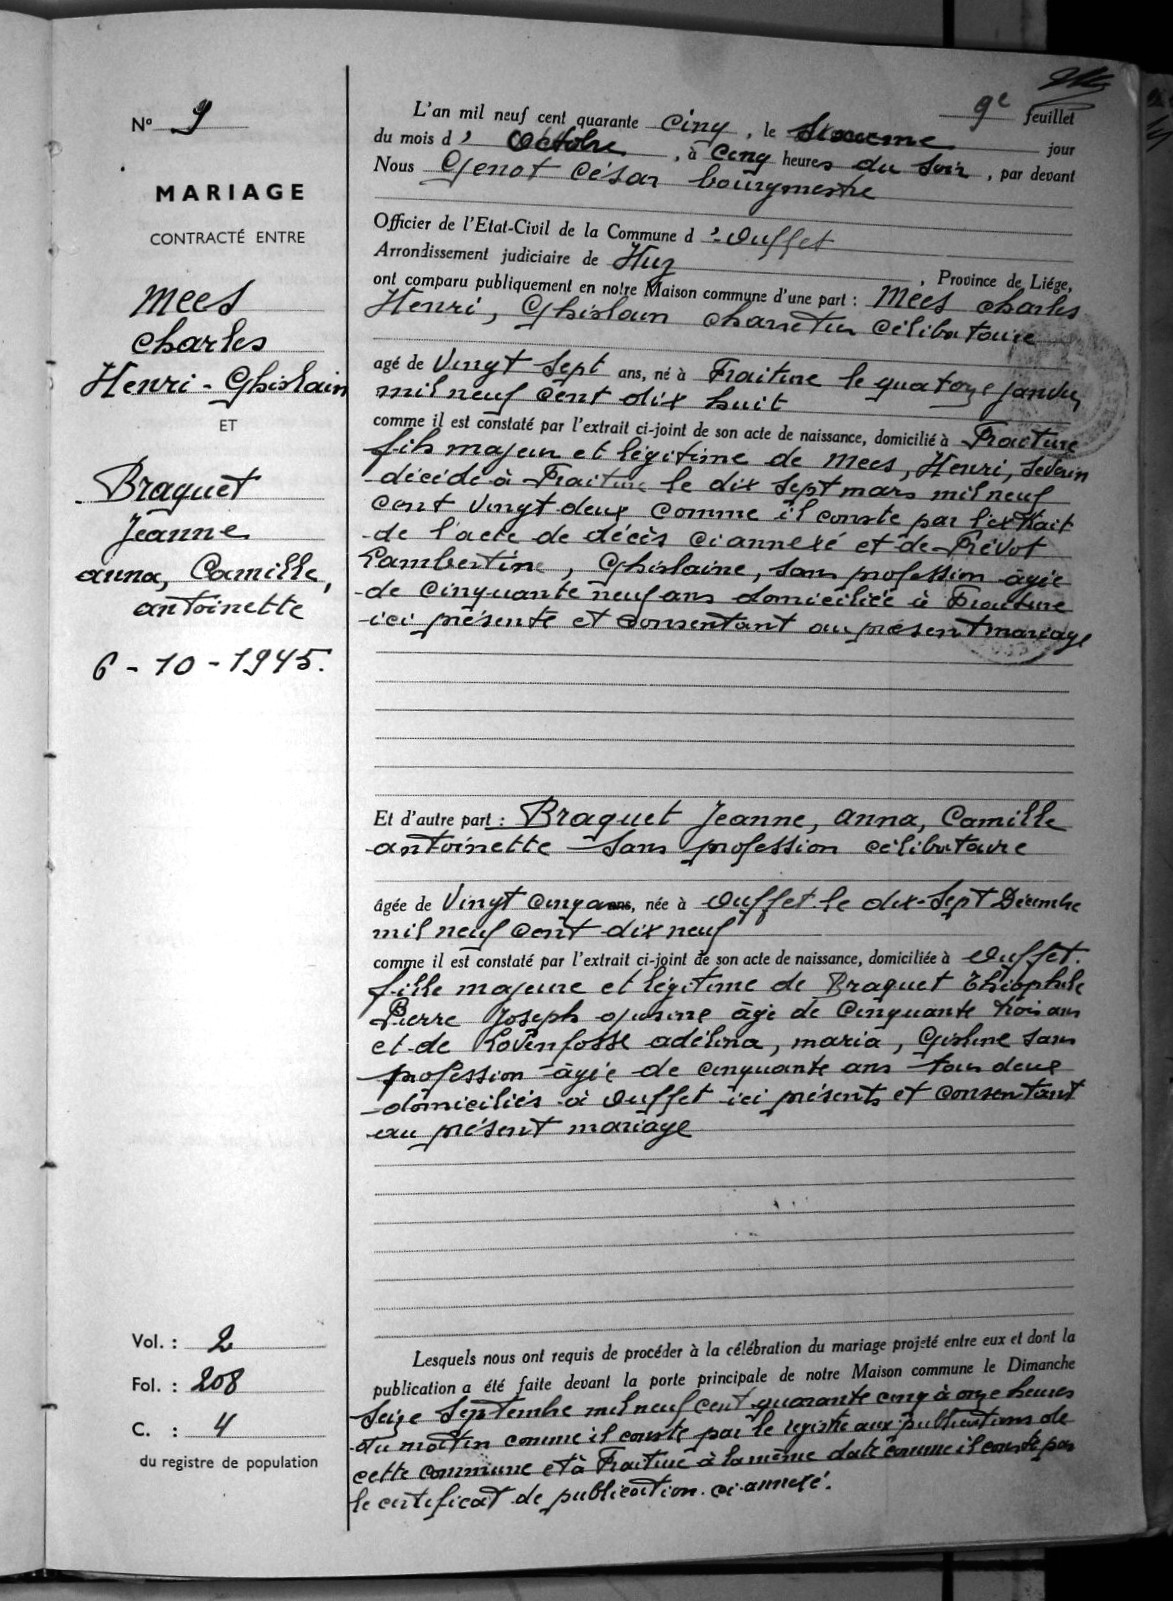 N° 9
MARIAGE
CONTRACTÉ ENTRE
Mees
Charles
Henri-Ghislain
ET
Braquet
Jeanne
Anna, Camille,
Antoinette
6-10-1945.
Vol. : 2
Fol. : 208
C. : 4
du registre de population
9e feuillet
L'an mil neuf cent quarante cinq, le sixième jour
du mois d'octobre, à cinq heures du soir, par devant
Nous Genot César bourgmestre
Officier de l'Etat-Civil de la Commune d'Ouffet
Arrondissement judiciaire de Huy, Province de Liége,
ont comparu publiquement en notre Maison commune d'une part : Mees Charles
Henri, Ghislain charretier célibataire
agé de vingt sept ans, né à Fraiture le quatorze janvier
mil neuf cent dix huit
comme il est constaté par l'extrait ci-joint de son acte de naissance, domicilié à Fraiture
fils majeur et légitime de Mees, Henri, Séverin
décédé à Fraiture le dix sept mars mil neuf
cent vingt-deux comme il conste par l'extrait
de l'acte de décès ci annexé et de Prévot
Lambertine, Ghislaine, sans profession âgée
de cinquante neuf ans domiciliée à Fraiture
ici présente et consentant au présent mariage
Et d'autre part : Braquet Jeanne, Anna, Camille
Antoinette sans profession célibataire
âgée de vingt cinq ans, née à Ouffet le dix-sept Décembre
mil neuf cent dix neuf
comme il est constaté par l'extrait ci-joint de son acte de naissance, domiciliée à Ouffet.
fille majeure et légitime de Braquet Théophile
Pierre Joseph âgé de cinquante trois ans
et de Lovenfosse Adélina, Maria, sans
profession âgée de cinquante ans tous deux
domiciliés à Ouffet ici présents et consentant
au présent mariage
Lesquels nous ont requis de procéder à la célébration du mariage projeté entre eux et dont la
publication a été faite devant la porte principale de notre Maison commune le Dimanche
seize Septembre mil neuf cent quarante cinq à onze heures
du matin comme il conste par le registre aux publications de
cette commune et à Fraiture à la même date comme il conste par
le certificat de publication ci-annexé.